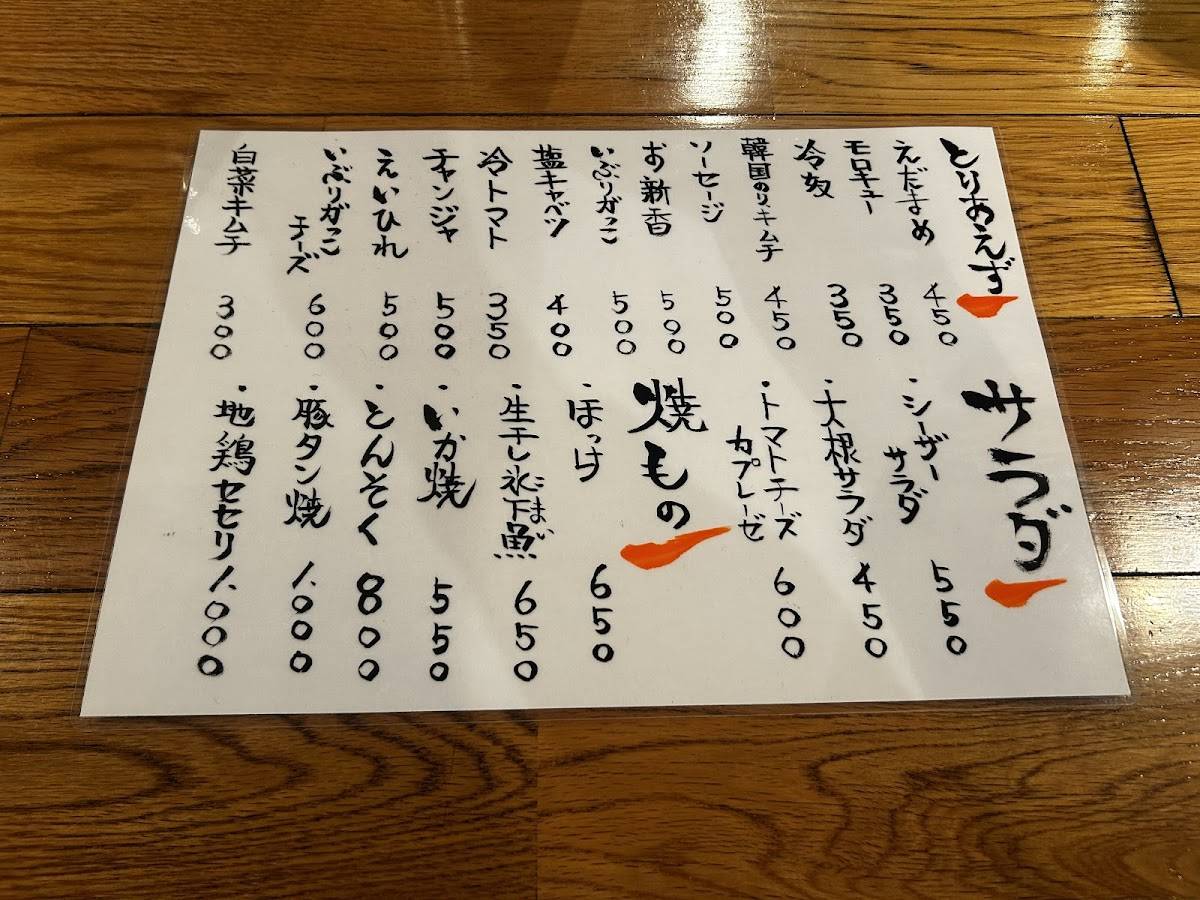 とりあえず
えだまめ 450
モロキュー 350
冷奴 350
韓国のり・キムチ 450
ソーセージ 500
お新香 500
いぶりがっこ 500
塩キャベツ 400
冷トマト 350
チャンジャ 500
えいひれ 500
いぶりがっこ
チーズ 600
白菜キムチ 300
サラダ
・シーザー
サラダ 550
・大根サラダ 450
・トマトチーズ
カプレーゼ 600
焼もの
・ほっけ 650
・生干し氷下魚 こまい 650
・いか焼 550
・とんそく 800
・豚タン焼 1.000
・地鶏セセリ 1.000